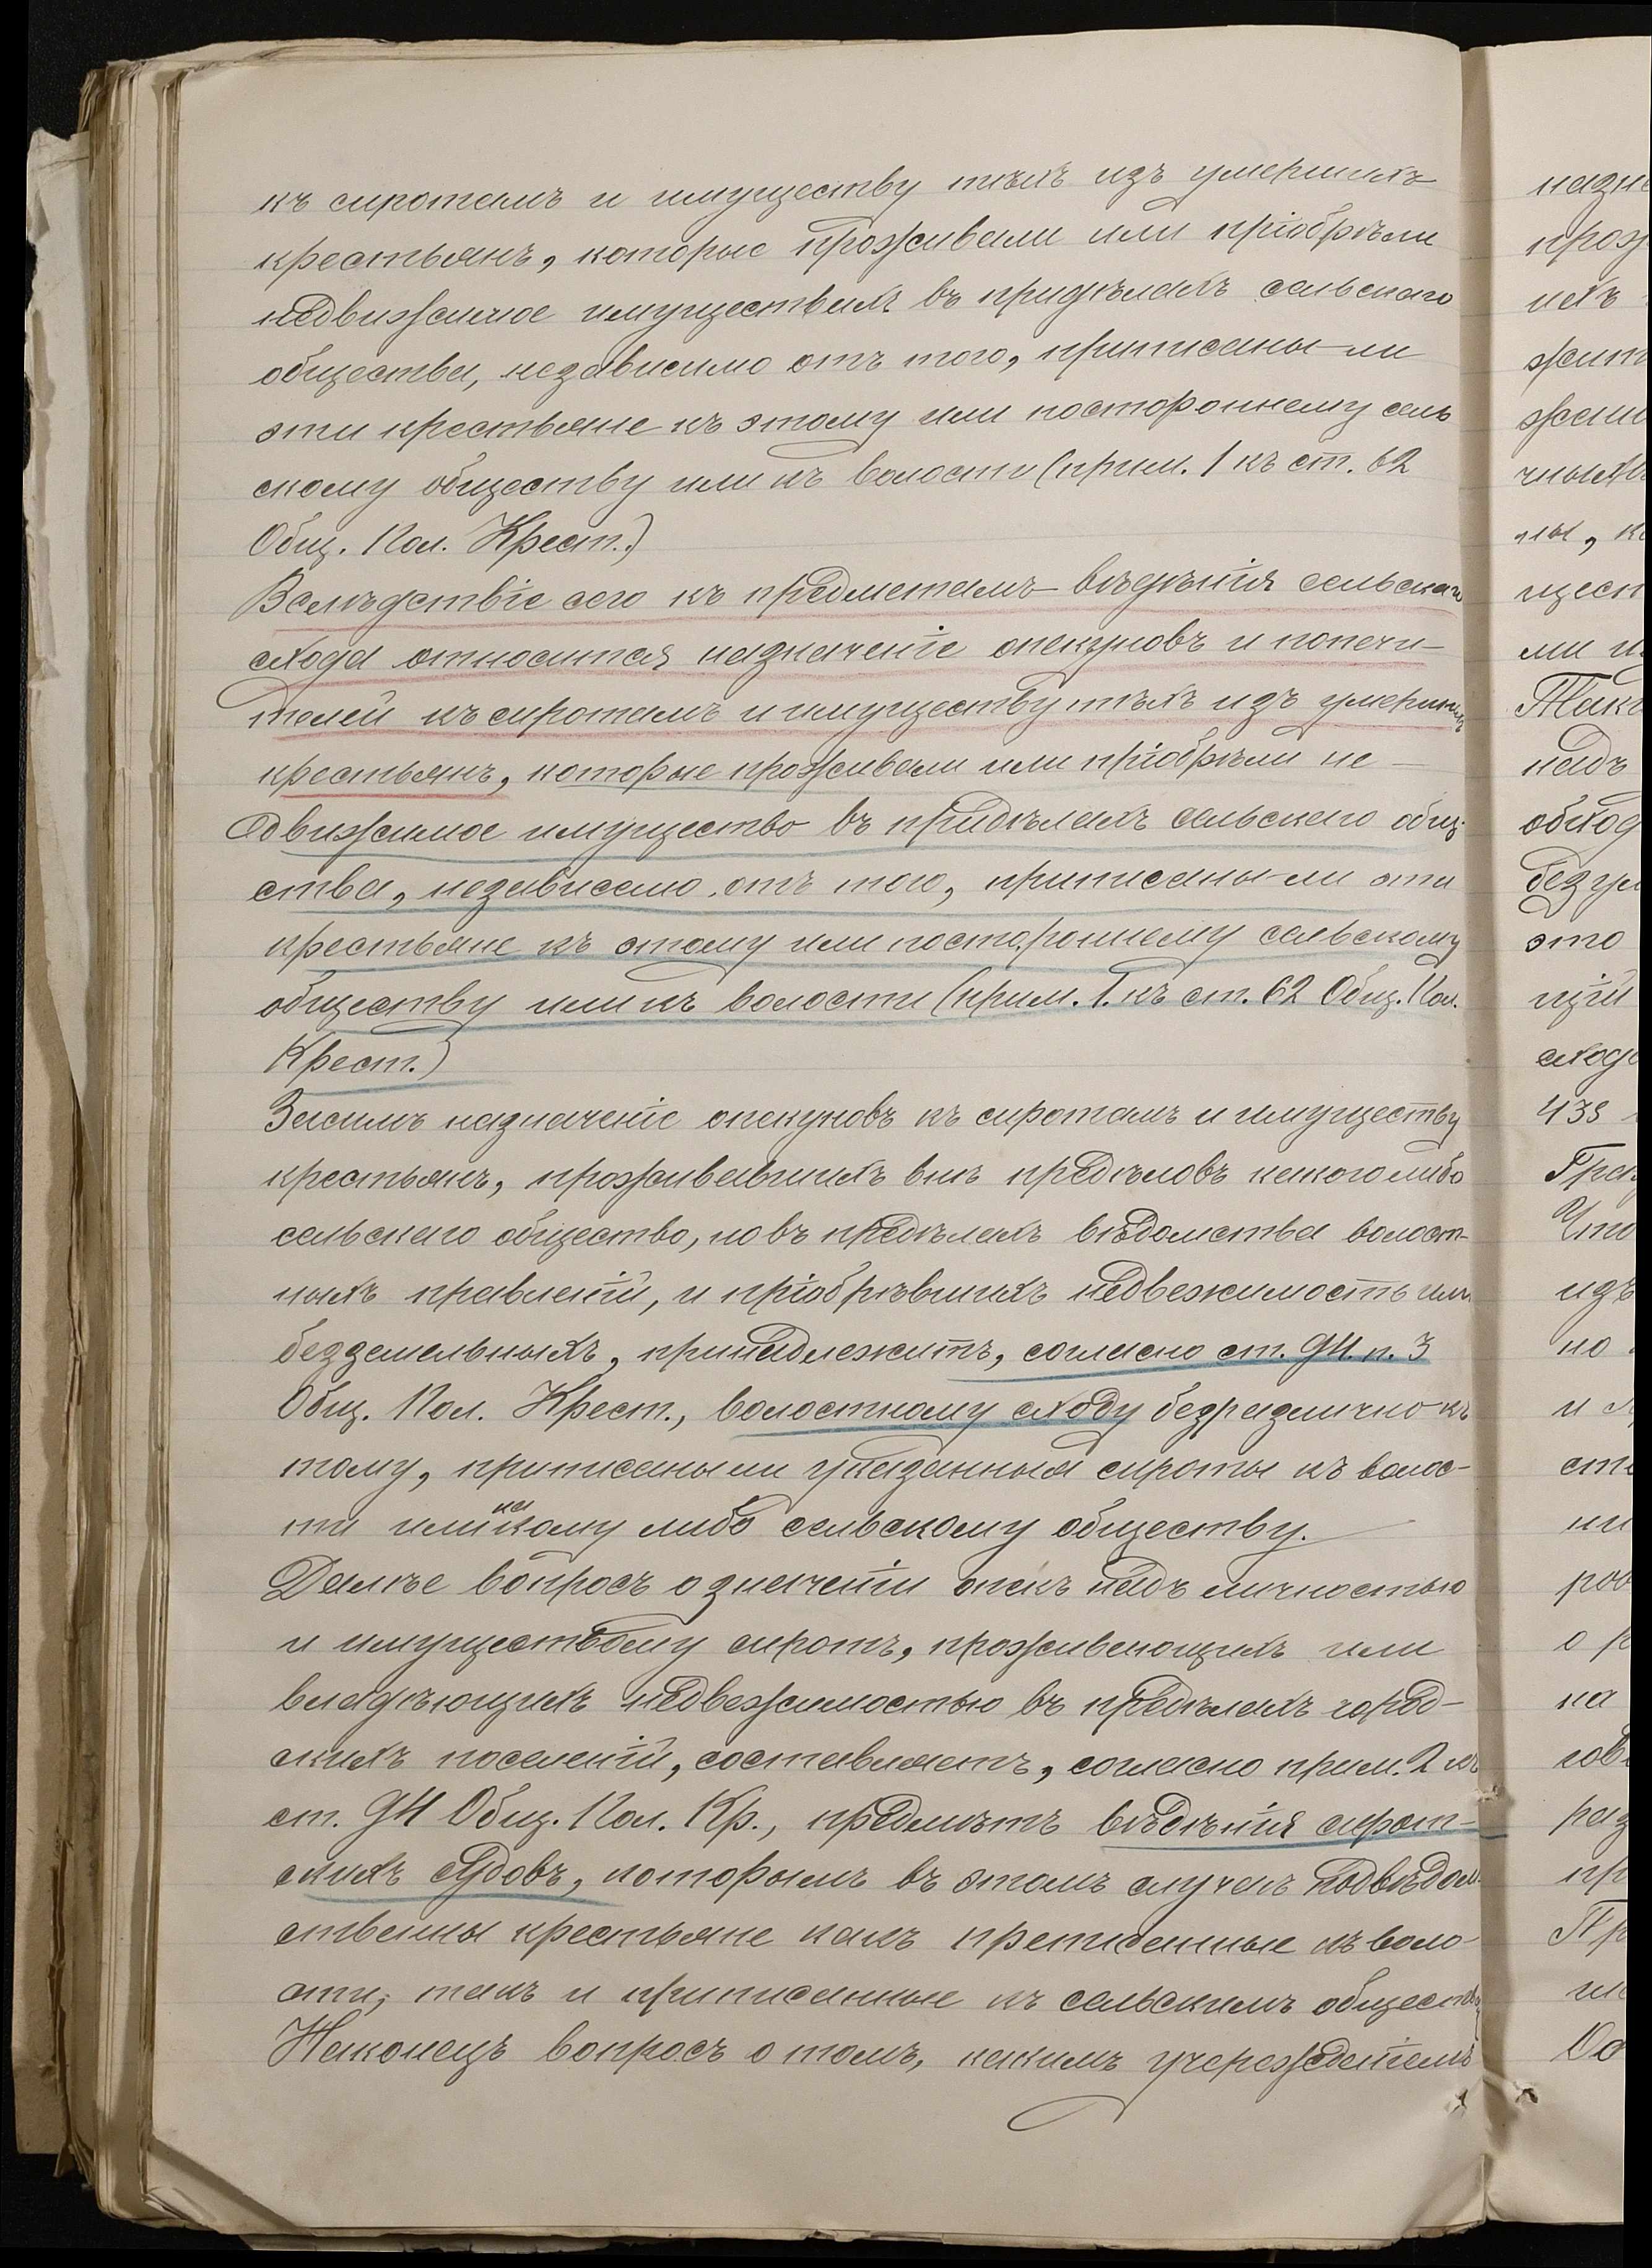 къ сиротамъ и имуществу тѣхъ изъ умершихъ
крестьянъ, которые проживали или пріобрѣли
недвижимое имуществамъ въ придѣлахъ сельскаго
общества, независимо отъ того, приписаны-ли
эти крестьяне къ этому или постороннему сель
скому обществу или къ волости (прим. 1 къ ст. 62
Общ. Пол. Крест.)
Вслѣдствіе сего къ предметамъ вѣдѣнія сельскаго
схода относится назначеніе опекуновъ и попечи-
телей къ сиротамъ и имуществу тѣхъ изъ умершихъ
крестьянъ, которые проживали или пріобрѣли не-
движимое имущество въ придѣлахъ сельскаго общ-
ства, независемо отъ того, приписаны-ли эти
крестьяне къ этому или постороннему сельскому
обществу или къ волости (прим. 1. къ ст. 62 Общ. Пол.
Крест.)
Засимъ назначеніе опекуновъ къ сиротамъ и имуществу
крестьянъ, проживавшихъ внѣ предѣловъ какого либо
сельскаго общество, но въ предѣлахъ вѣдомства волост-
ныхъ правленій, и пріобрѣвшихъ недвежимость или
безземельныхъ, принадлежитъ, согласно ст. 94. п. 3
Общ. Пол. Крест., волостному сходу безразлично къ
тому, приписаны ли указанныя сироты къ волос-
ти или ка кому либо сельскому обществу.
Далѣе вопросъ о значеніи опекъ надъ личностью
и имуществому сиротъ, проживающихъ или
владѣющихъ недвежимостью въ предѣлахъ город-
скихъ поселеній, составляетъ, согласно прим. 2 къ
ст. 94 Общ. Пол. Кр., предметъ вѣдѣнія сирот-
скихъ судовъ, которымъ въ этомъ случаѣ подвѣдом-
ственны крестьяне какъ преписанные къ воло-
сти, такъ и приписанные къ сельскимъ обществ
Наконецъ вопросъ о томъ, какимъ учережденіемъ